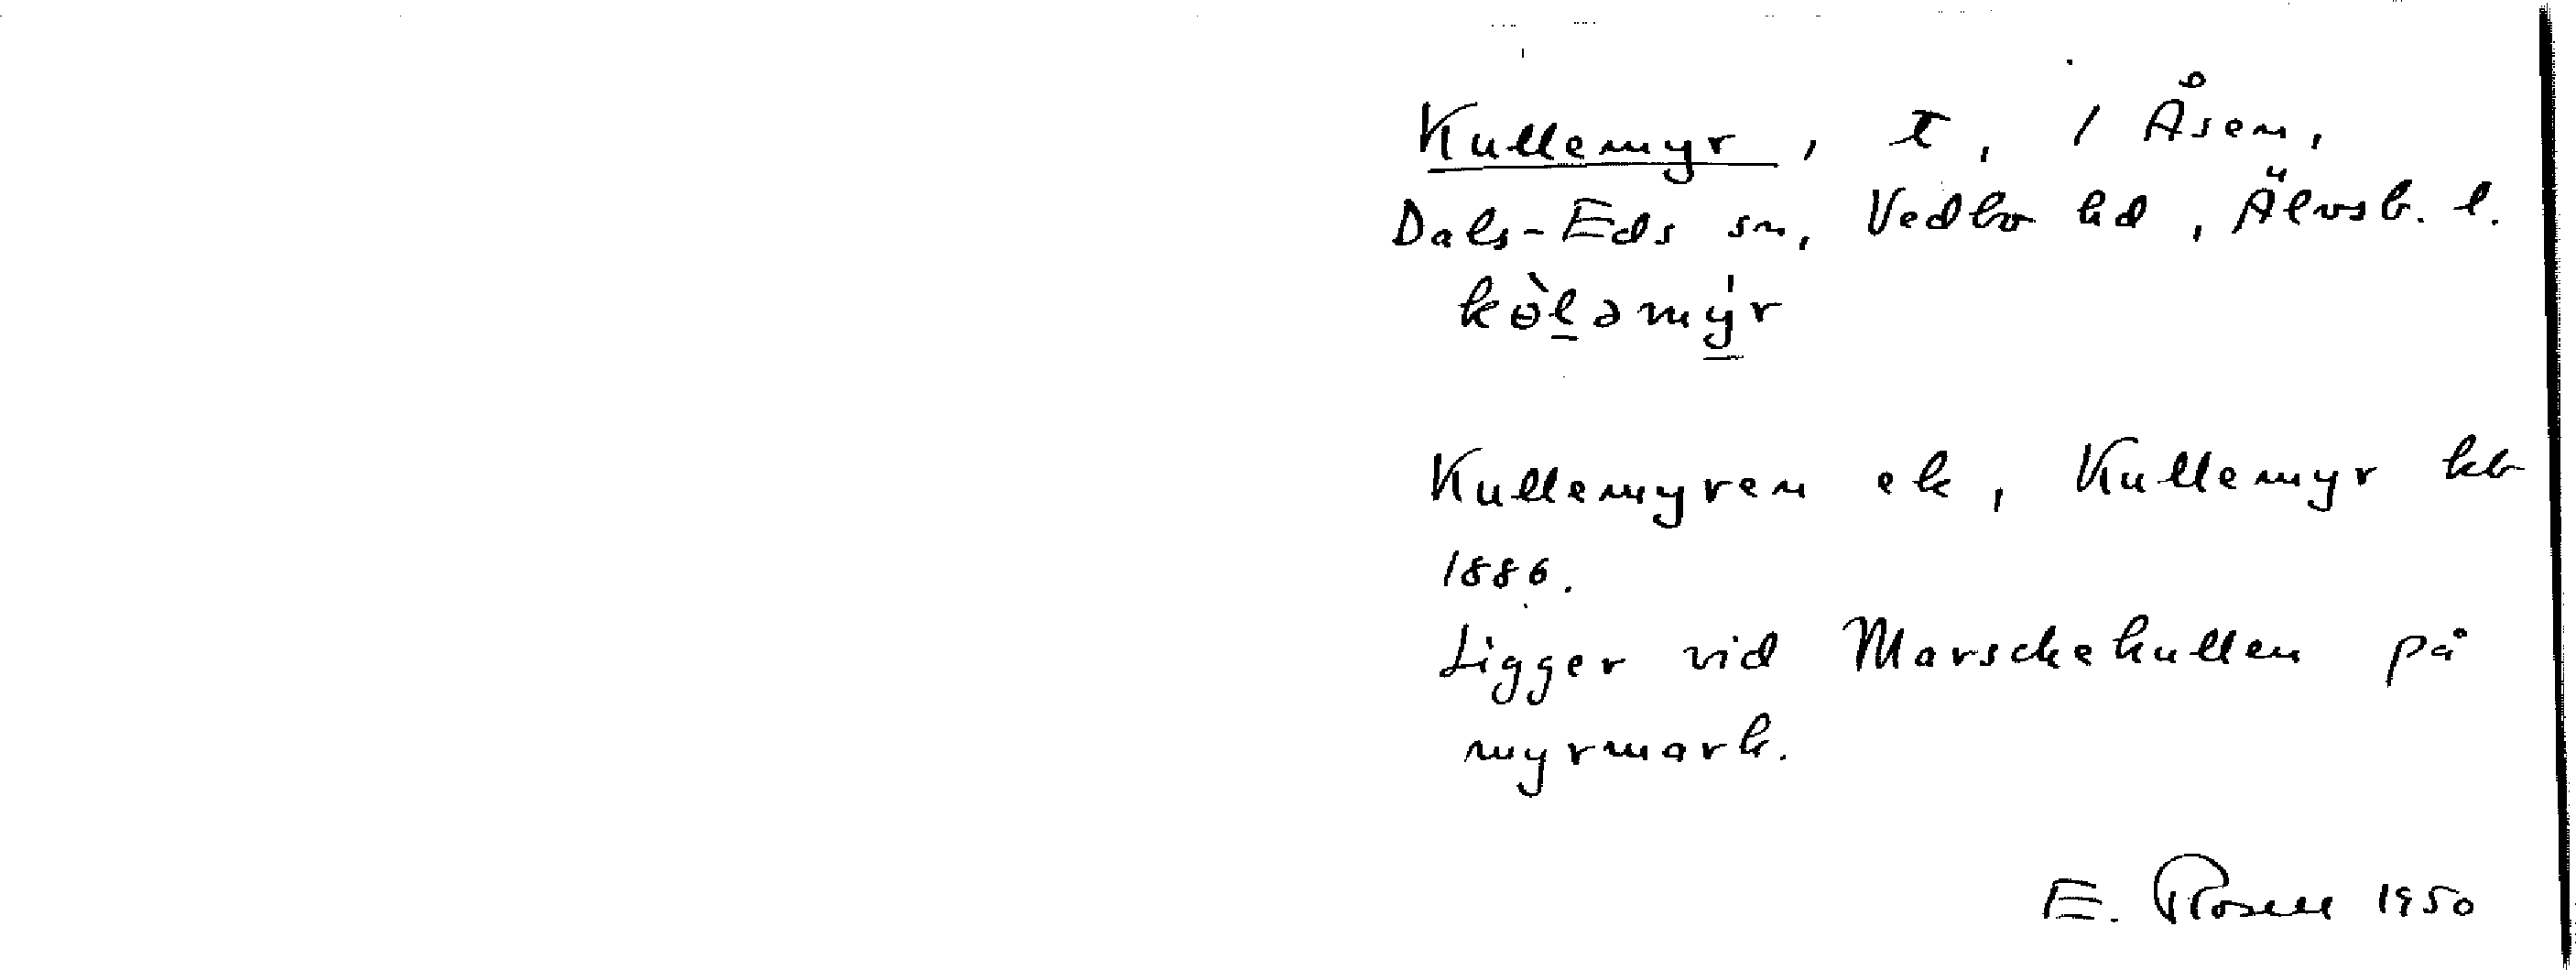 Kullemyr, t, / Åsen,
Dals-Eds sn, Vedbo hd, Älvsb. l.
kɵ̀ləmýr
Kullemyren ek, Kullemyr kb
1886.
Ligger vid Marschekullen på
myrmark.
E. Rosell 1950